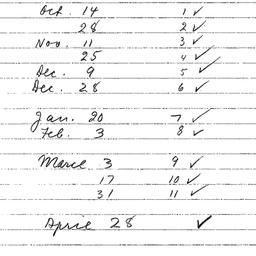 Oct. 14 1 ✓
28 2 ✓
Nov. 11 3 ✓
25 4 ✓
Dec. 9 5 ✓
Dec. 28 6 ✓
Jan. 20 7 ✓
Feb. 3 8 ✓
March 3 9 ✓
17 10 ✓
31 11 ✓
April 28 ✓